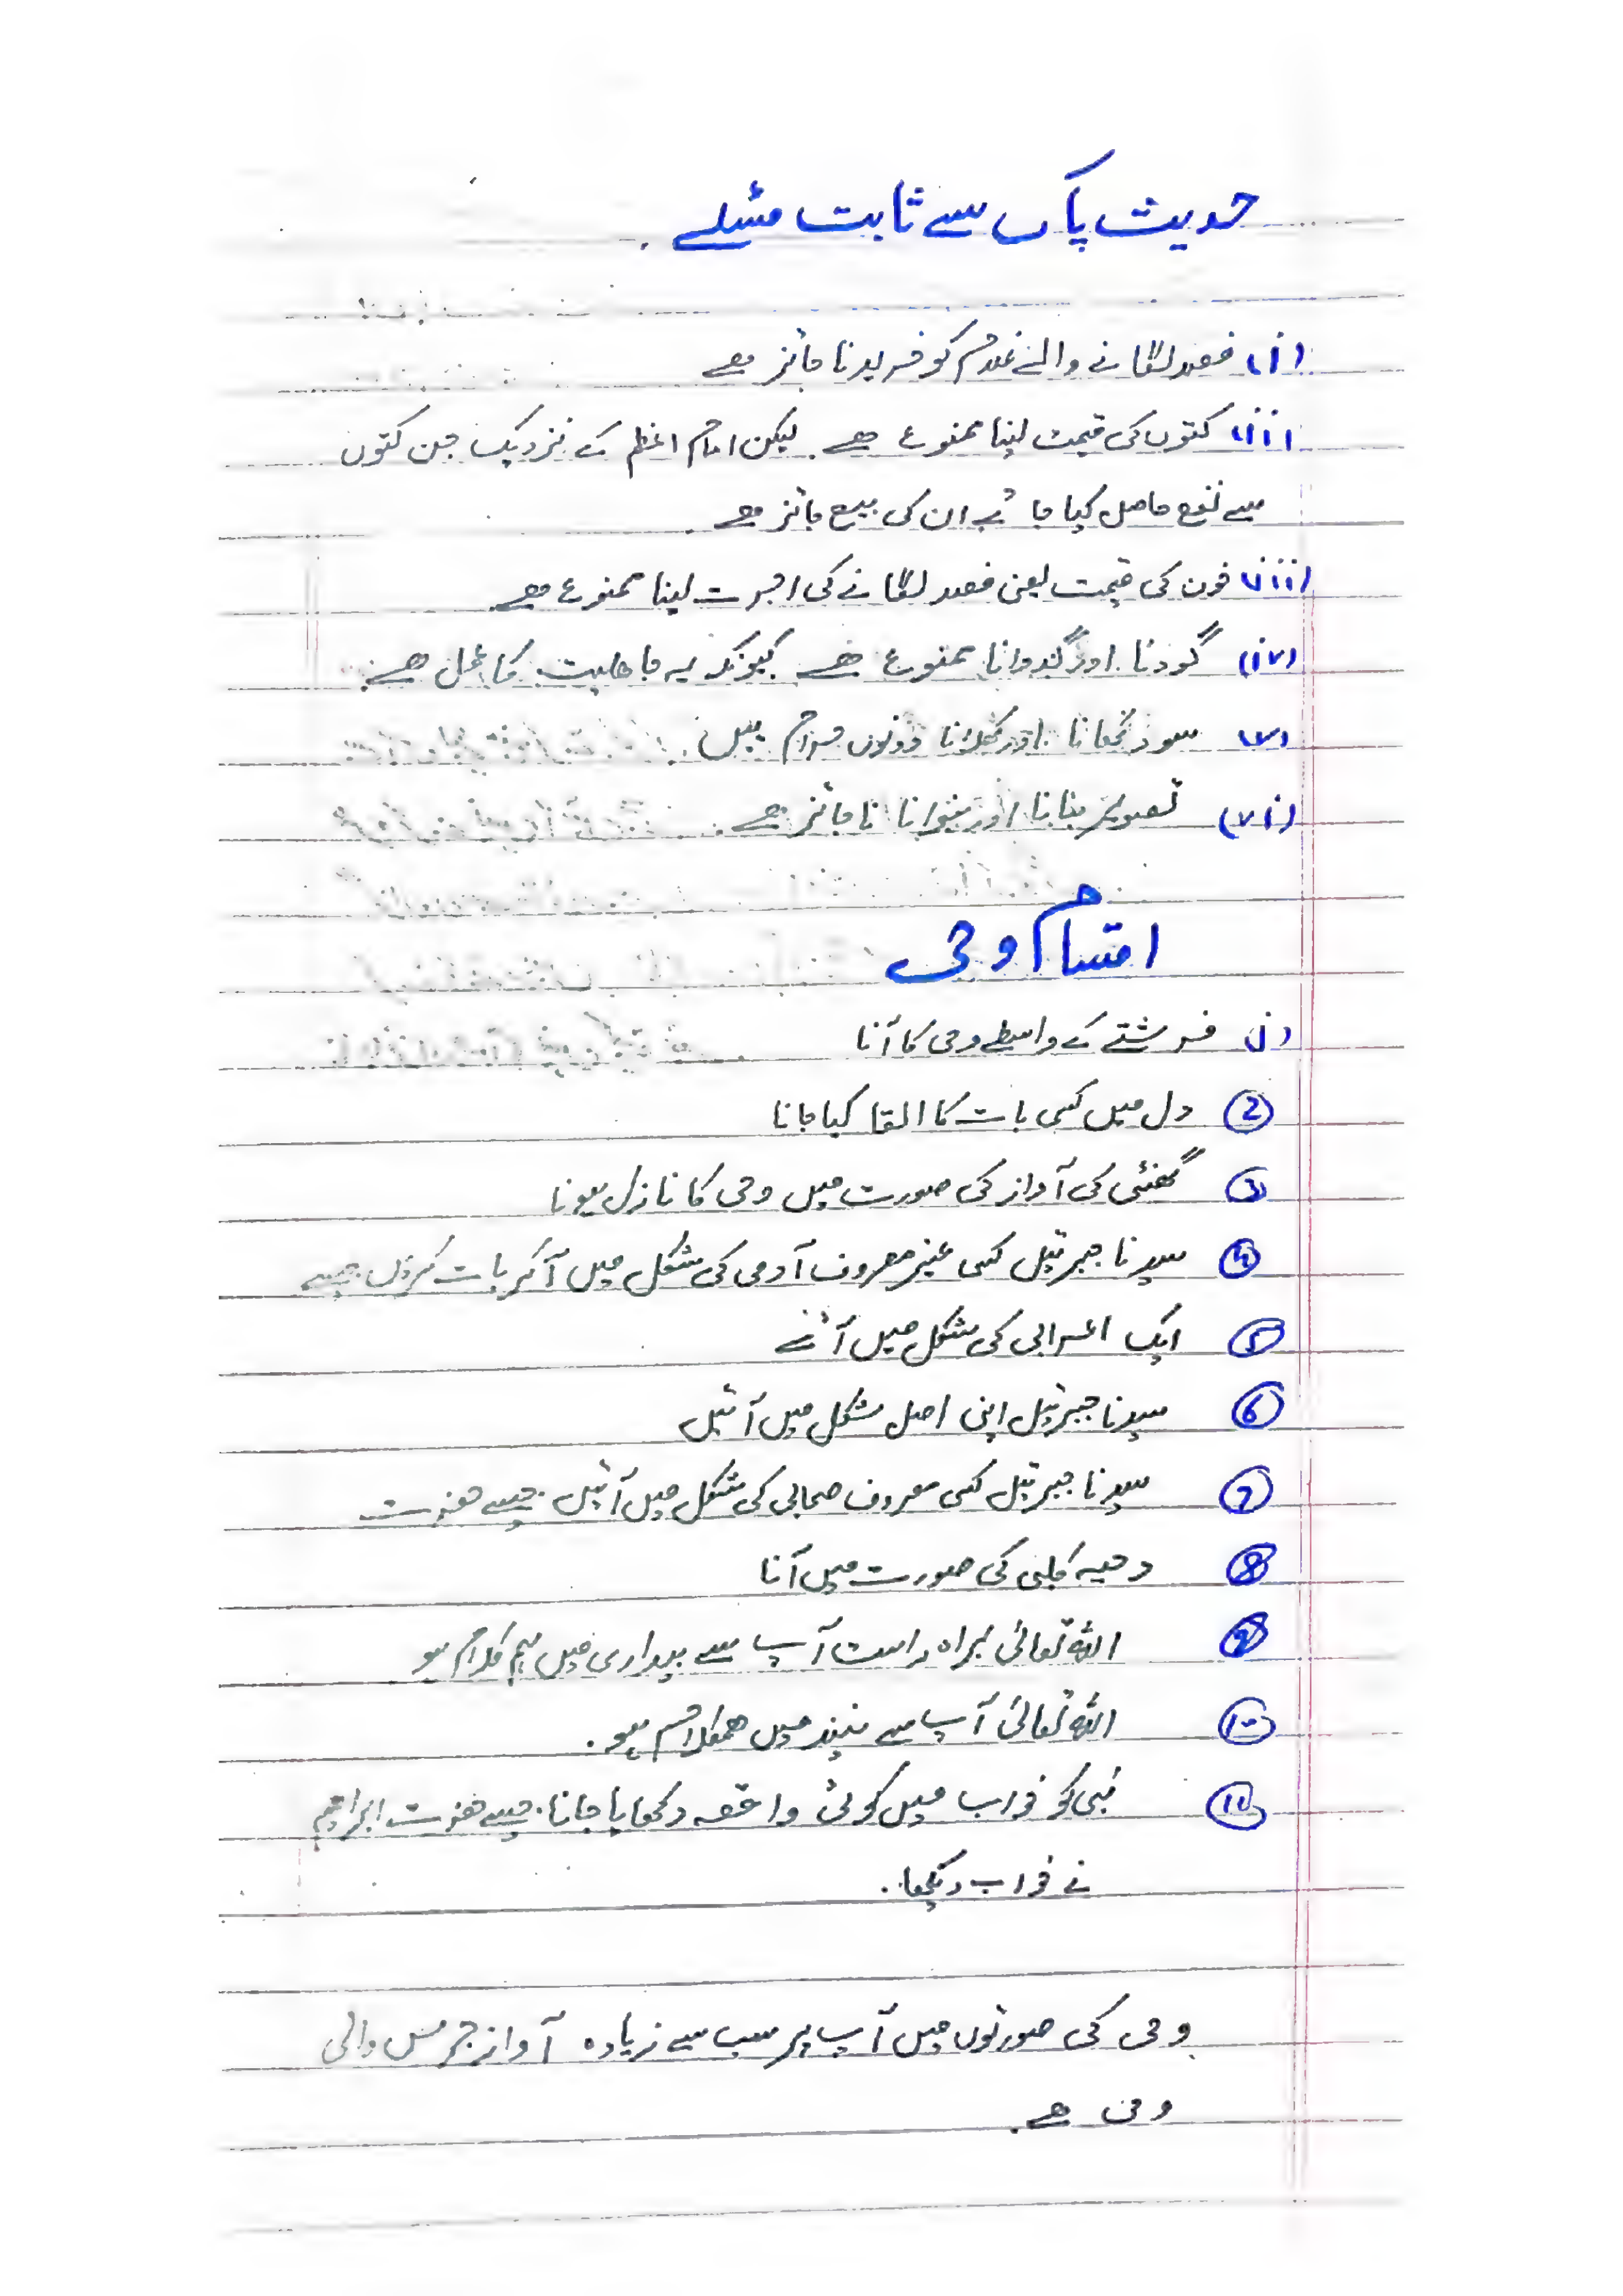 حدیث پاک سے ثابت مسئلے
(i) فصد لگانے والے غلام کو خریدنا جائز ہے
(ii) کتوں کی قیمت لینا ممنوع ہے۔ لیکن امام اعظم کے نزدیک جن کتوں
سے نفع حاصل کیا جائے ان کی بیع جائز ہے۔
(iii) خون کی قیمت یعنی فصد لگانے کی اجرت لینا ممنوع ہے۔
(iv) گودنا اور گدوانا ممنوع ہے کیونکہ یہ جاہلیت کا عمل ہے۔
(v) سود کھانا اور کھلانا دونوں حرام ہیں۔
(vi) تصویر بنانا اور بنوانا ناجائز ہے۔
اقسام وحی
(i) فرشتے کے واسطے وحی کا آنا
(2) دل میں کسی بات کا القا کیا جانا
(3) گھنٹی کی آواز کی صورت میں وحی کا نازل ہونا
(4) سیدنا جبرئیل کسی غیر معروف آدمی کی شکل میں آکر بات کریں جیسے
(5) ایک اعرابی کی شکل میں آئے
(6) سیدنا جبرئیل اپنی اصل شکل میں آئیں
(7) سیدنا جبرئیل کسی معروف صحابی کی شکل میں آئیں۔ جیسے حضرت
(8) دحیہ کلبی کی صورت میں آنا
(9) اللہ تعالیٰ براہ راست آپ سے بیداری میں ہم کلام ہو
(10) اللہ تعالیٰ آپ سے نیند میں ہمکلام ہو۔
(11) نبی کو خواب میں کوئی واقعہ دکھایا جانا۔ جیسے حضرت ابراہیم
نے خواب دیکھا۔
وحی کی صورتوں میں آپ پر سب سے زیادہ آواز جرس والی
وحی ہے۔